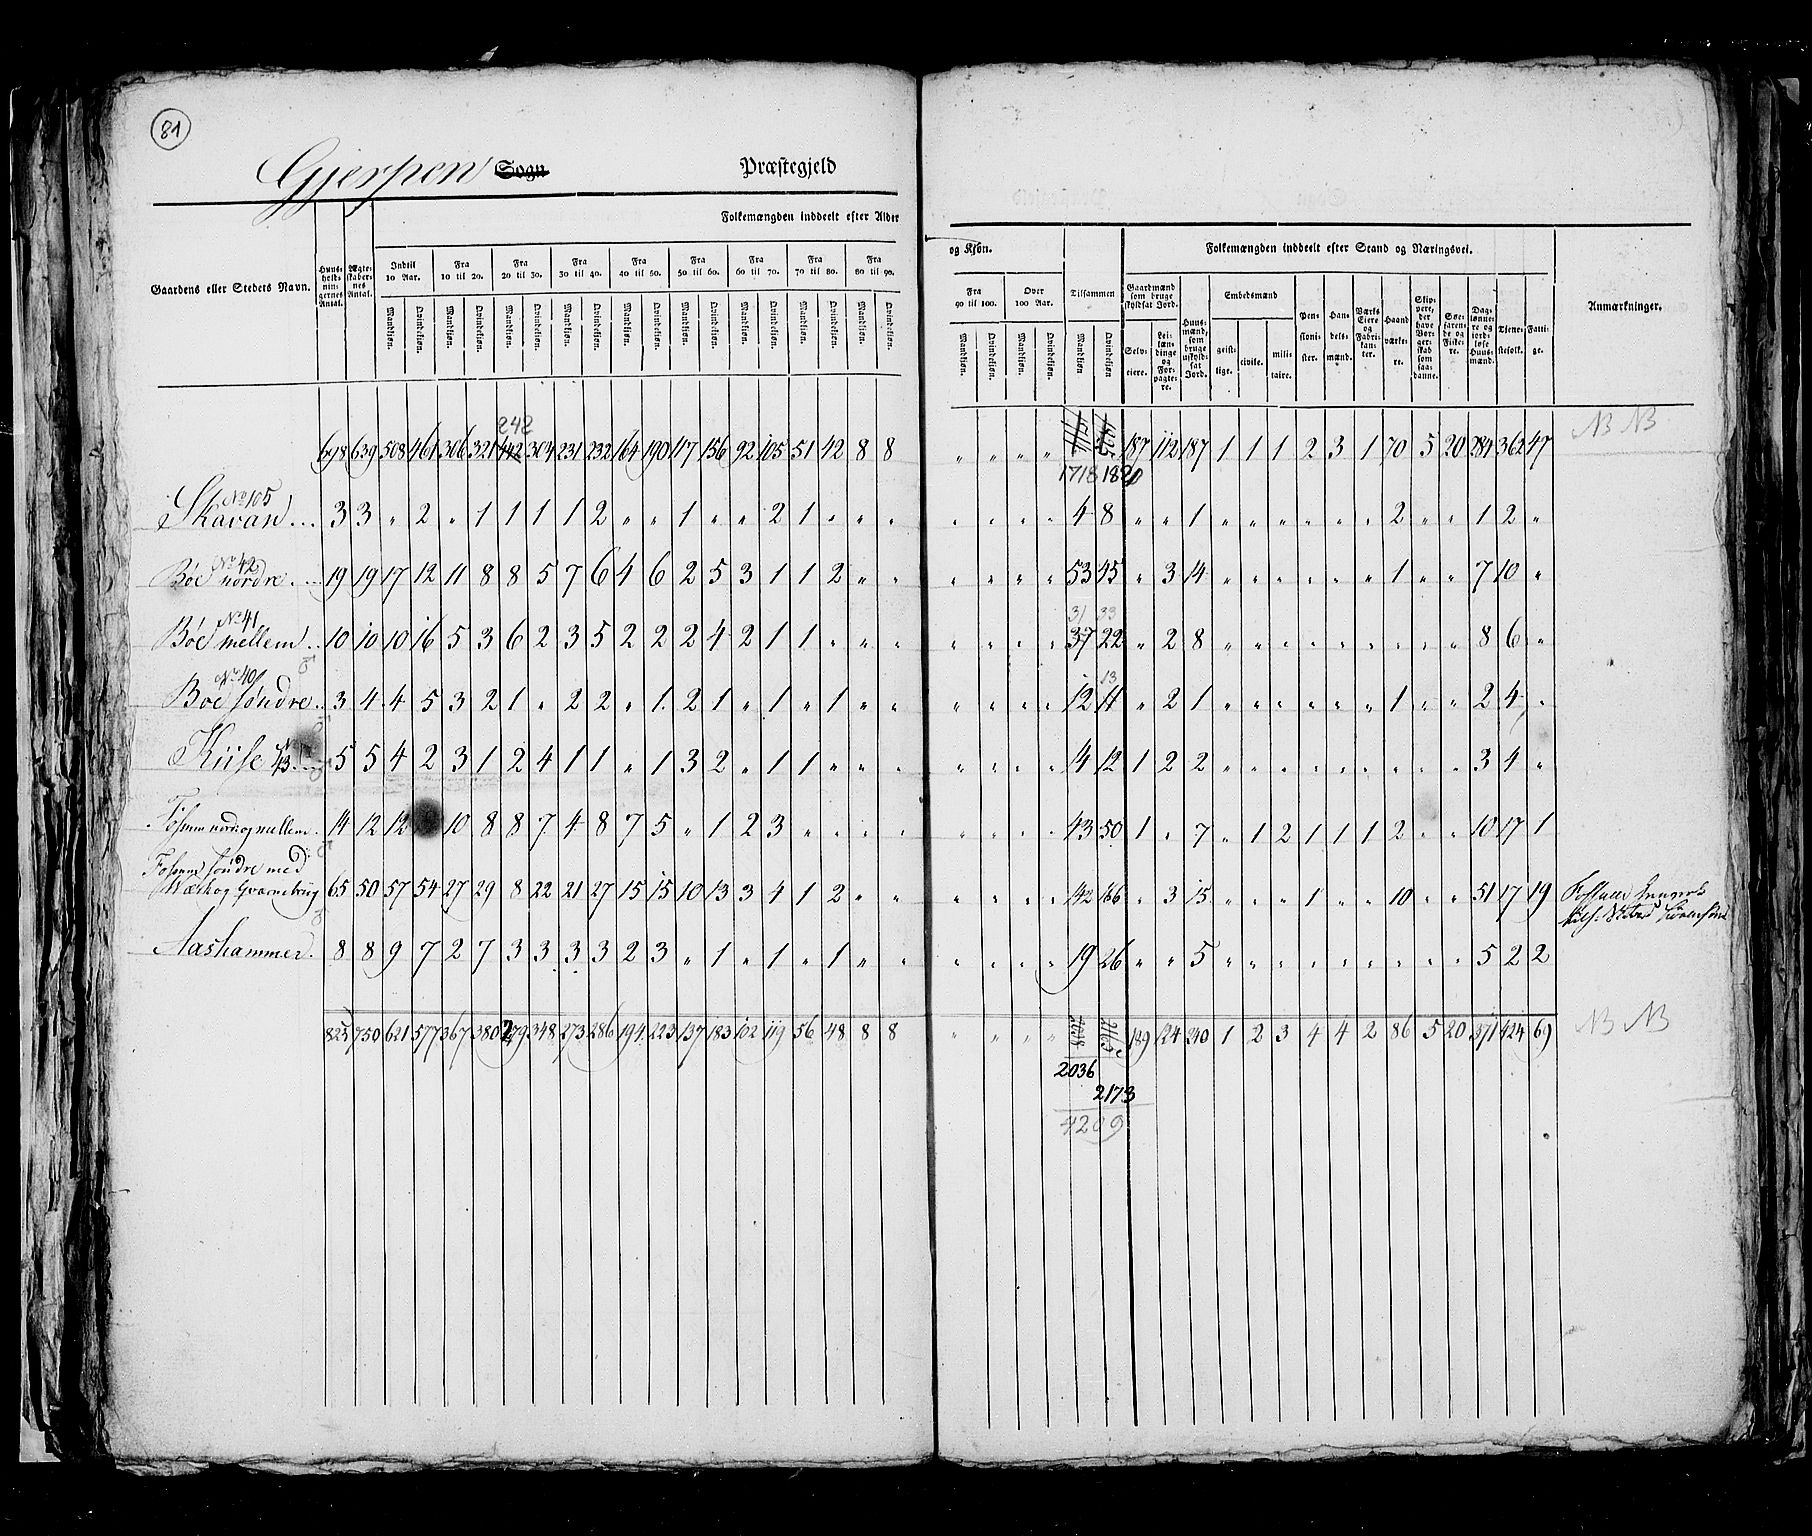 81
Gjerpen Sogn Præstegjeld
Folkemængden inddeelt efter Alder og Kjön. Folkemængden inddeelt efter Stand og Næringsvei.
Gaardens eller Stedets Navn. Huus-holdningernes Antal. Ægteskabernes Antal. Indtil 10 Aar. Fra 10 til 20. Fra 20 til 30. Fra 30 til 40. Fra 40 til 50. Fra 50 til 60. Fra 60 til 70. Fra 70 til 80. Fra 80 til 90. Fra 90 til 100. Over 100 Aar. Tilsammen Gaardmænd som bruge skyldsat Jord. Huusmænd, som bruge uskyldsat Jord. Embedsmænd Pensionister. Handelsmænd. Værks Eiere og Fabrikanter. Haandværkere. Skippere, der have Borgerskab som saadanne. Søefarende og Fiskere. Daglønnere og jordløse Huusmænd. Tjenestefolk. Fattige. Anmærkninger.
Mandkiön. Qvindekiön. Mandkiön. Qvindekiön. Mandkiön. Qvindekiön. Mandkiön. Qvindekiön. Mandkiön. Qvindekiön. Mandkiön. Qvindekiön. Mandkiön. Qvindekiön. Mandkiön. Qvindekiön. Mandkiön. Qvindekiön. Mandkiön. Qvindekiön. Mandkiön. Qvindekiön. Mandkiön Qvindekiön Selveiere. Leilændinge og Forpagtere. geistlige. civile. militaire.
242 NB NB
698 639 508 461 306 321 442 304 231 232 164 190 117 156 92 105 51 42 8 8 " " " " 187 112 187 1 1 1 2 3 1 70 5 20 284 362 47
1718 1820
No 105
Skavan 3 3 " 2 " 1 1 1 1 2 " " 1 " " 2 1 " " " " " " " 4 8 " " 1 " " " " " " 2 " " 1 2 "
No 42
Böe nordre 19 19 17 12 11 8 8 5 7 6 4 6 2 5 3 1 1 2 " " " " " " 53 45 " 3 14 " " " " " " 1 " " 7 10 "
No 41 31 33
Böe mellem 10 10 10 16 5 3 6 2 3 5 2 2 2 4 2 1 1 " " " " " " " 37 22 " 2 8 " " " " " " " " " 8 6 "
No 40 13
Böe söndre 3 4 4 5 3 2 1 " 2 2 " 1 2 1 " 1 " 1 " " " " " " 12 11 " 2 1 " " " " " " 1 " " 2 4 "
Kiise 43 5 5 4 2 3 1 2 4 1 1 " 1 3 2 " 1 1 " " " " " " " 4 12 1 2 2 " " " " " " " " " 3 4 "
Fossum nord og mellem 14 12 12 10 8 8 7 4 8 7 5 " 1 2 3 " " " " " " " " 43 50 1 " 7 " 1 2 1 1 1 2 " " 10 17 1
Fossum söndre med
Værk og Qvarnebrug 65 50 57 54 27 29 8 22 21 27 15 15 10 13 3 4 1 2 " " " " " " 142 166 " 3 15 " " " 1 " " 10 " " 51 17 19
Aashammer 8 8 9 7 2 7 3 3 3 3 2 3 " 1 " 1 " 1 " " " " " " 19 26 " " 5 " " " " " " " " " 5 2 2
825 750 621 577 367 380 279 348 273 286 194 223 137 183 102 119 56 48 8 8 " " " " 2163 189 124 240 1 2 3 4 4 2 86 5 20 371 424 69 NB NB
2036
2173
4209